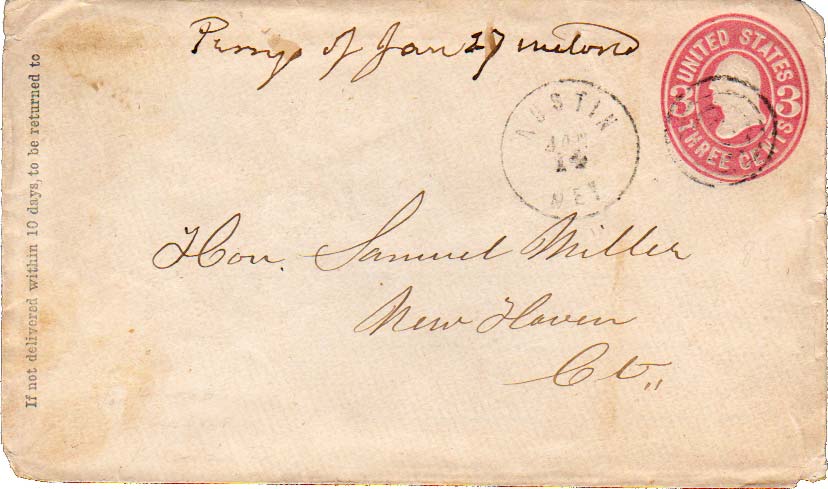 of Jan 27
UNITED STATES
3 3
THREE CENTS
AUSTIN
JAN
14
NEV
Hon. Samuel Miller
New Haven
Ct.,,
If not delivered within 10 days, to be returned to